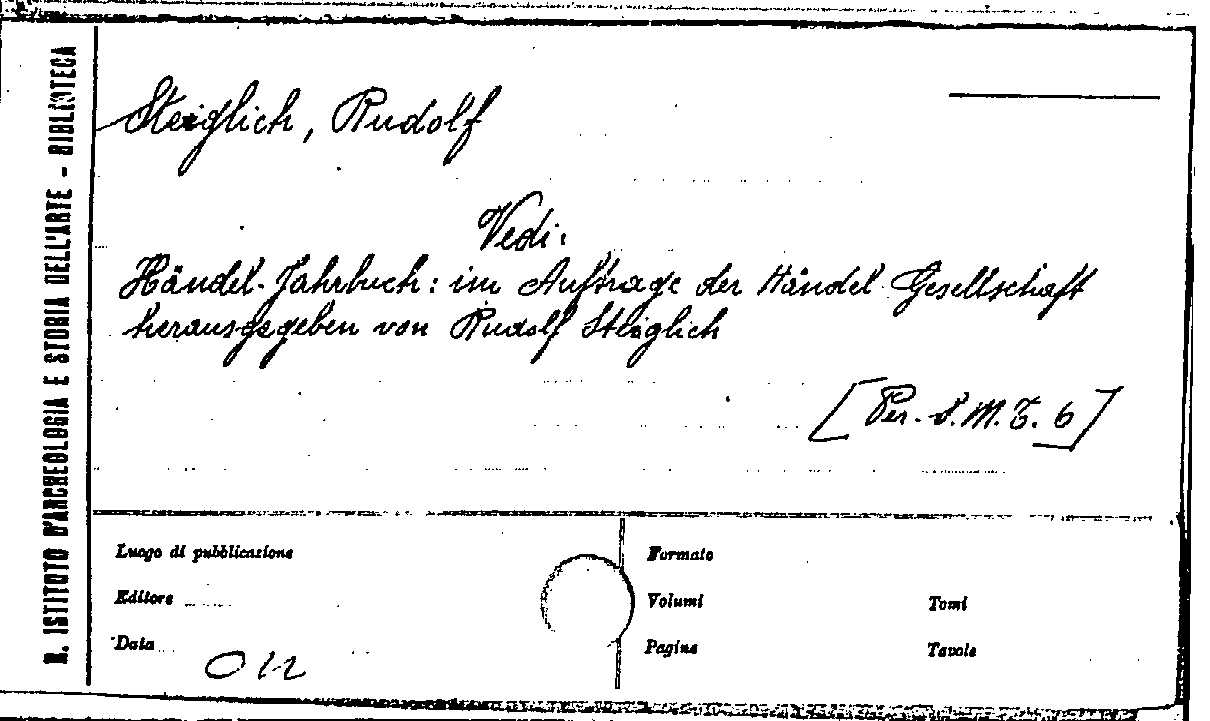 R. ISTITUTO D'ARCHEOLOGIA E STORIA DELL'ARTE - BIBLIOTECA
Steiglich, Rudolf
Vedi.
Händel-Jahrbuch: im Auftrage der Händel Gesellschaft
herausgegeben von Rudolf Steiglich
[Per. S.M.T. 6]
Luogo di pubblicazione
Editore
Data
Formato
Volumi Tomi
Pagine Tavole